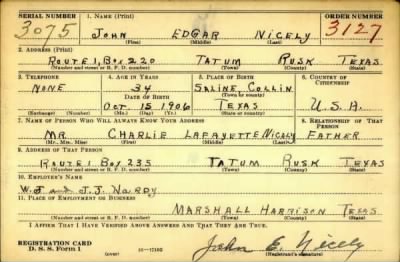 SERIAL NUMBER 1. NAME (Print) ORDER NUMBER
3075 JOHN EDGAR NICELY 3127
(First) (Middle) (Last)
2. ADDRESS (Print)
ROUTE 1, BOX 220 TATUM RUSK TEXAS
(Number and street or R. F. D. number) (Town) (County) (State)
3. TELEPHONE 4. AGE IN YEARS 5. PLACE OF BIRTH 6. COUNTRY OF CITIZENSHIP
NONE 34 SALINE, COLLIN
DATE OF BIRTH (Town or county)
OCT. 15 1906 TEXAS U.S.A.
(Exchange) (Number) (Mo.) (Day) (Yr.) (State or country)
7. NAME OF PERSON WHO WILL ALWAYS KNOW YOUR ADDRESS 8. RELATIONSHIP OF THAT PERSON
MR. CHARLIE LAFAYETTE NICELY FATHER
(Mr., Mrs., Miss) (First) (Middle) (Last)
9. ADDRESS OF THAT PERSON
ROUTE 1 BOX 235 TATUM RUSK TEXAS
(Number and street or R. F. D. number) (Town) (County) (State)
10. EMPLOYER'S NAME
W.J. and J.J. HARDY
11. PLACE OF EMPLOYMENT OR BUSINESS
MARSHALL HARRISON TEXAS
(Number and street or R. F. D. number) (Town) (County) (State)
I AFFIRM THAT I HAVE VERIFIED ABOVE ANSWERS AND THAT THEY ARE TRUE.
REGISTRATION CARD
D. S. S. Form 1 (over) John E. Nicely
(Registrant's signature)